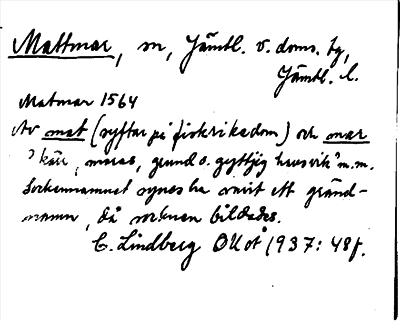 Mattmar, sn, Jämtl. v. doms. tg,
Jämtl. l.
Matmar 1564
Av mat (syftar på fiskrikedom) och mar
"kärr, moras, grund o. gyttjig havsvik" m.m.
Sockennamnet synes ha varit ett gränd-
namn, då socknen bildades.
C. Lindberg OUoÅ 1937: 48f.